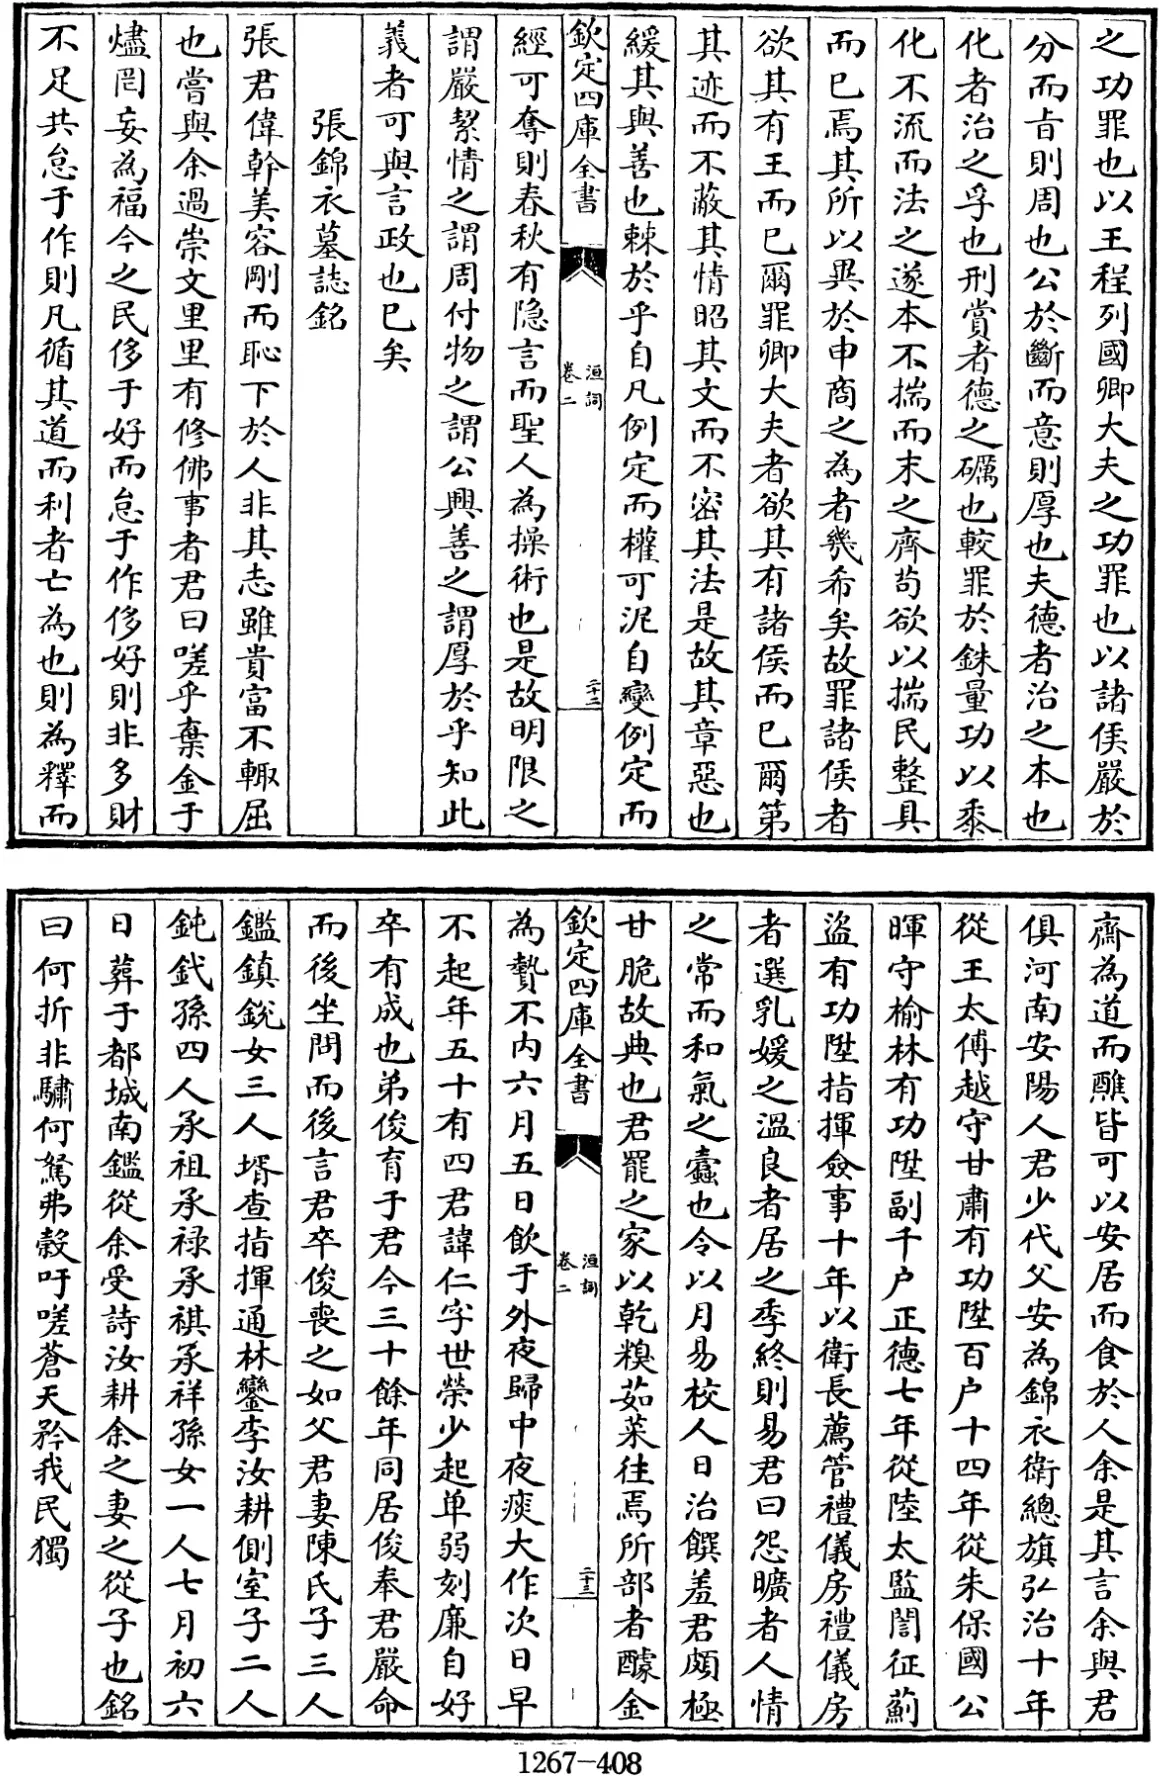 之功罪也以王程列國卿大夫之功罪也以諸侯嚴於
分而旨則周也公於斷而意則厚也夫德者治之本也
化者治之孚也刑賞者德之礪也較罪於銖量功以黍
化不流而法之遂本不揣而末之齊茍欲以揣民整具
而巳焉其所以異於申商之為者幾希矣故罪諸侯者
欲其有王而巳爾罪卿大夫者欲其有諸侯而巳爾第
其迹而不蔽其情昭其文而不密其法是故其章惡也
緩其與善也棘於乎自凡例定而權可泥自變例定而
欽定四庫全書
洹詞
卷二
二十二
經可奪則春秋有隠言而聖人為操術也是故明限之
謂嚴絜情之謂周付物之謂公興善之謂厚於乎知此
義者可與言政也巳矣
張錦衣墓誌銘
張君偉幹美容剛而恥下於人非其志雖貴富不輙屈
也嘗與余過崇文里里有修佛事者君曰嗟乎棄金于
燼罔妄為福今之民侈于好而怠于作侈好則非多財
不足共怠于作則凡循其道而利者亡為也則為釋而
齋為道而醮皆可以安居而食於人余是其言余與君
俱河南安陽人君少代父安為錦衣衛總旗弘治十年
從王太傅越守甘肅有功陞百户十四年從朱保國公
暉守榆林有功陞副千户正德七年從陸太監誾征薊
盜有功陞指揮僉事十年以衛長薦管禮儀房禮儀房
者選乳媛之溫良者居之季終則易君曰怨曠者人情
之常而和氣之蠧也令以月易校人日治饌羞君頗極
甘脆故典也君罷之家以乾糗茹菜徃焉所部者醵金
欽定四庫全書
洹詞
卷二
二十三
為贄不内六月五日飲于外夜歸中夜痰大作次日早
不起年五十有四君諱仁字世榮少起单弱刻廉自好
卒有成也弟俊育于君今三十餘年同居俊奉君嚴命
而後坐問而後言君卒俊喪之如父君妻陳氏子三人
鑑鎮鋭女三人壻查指揮通林鑾李汝耕側室子二人
鈍釴孫四人承祖承禄承祺承祥孫女一人七月初六
日葬于都城南鑑從余受詩汝耕余之妻之從子也銘
曰何折非驌何駑弗縠吁嗟蒼天矜我民獨
1267-408